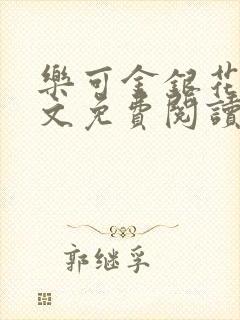 樂可金銀花
文免費閱讀
郭继孚